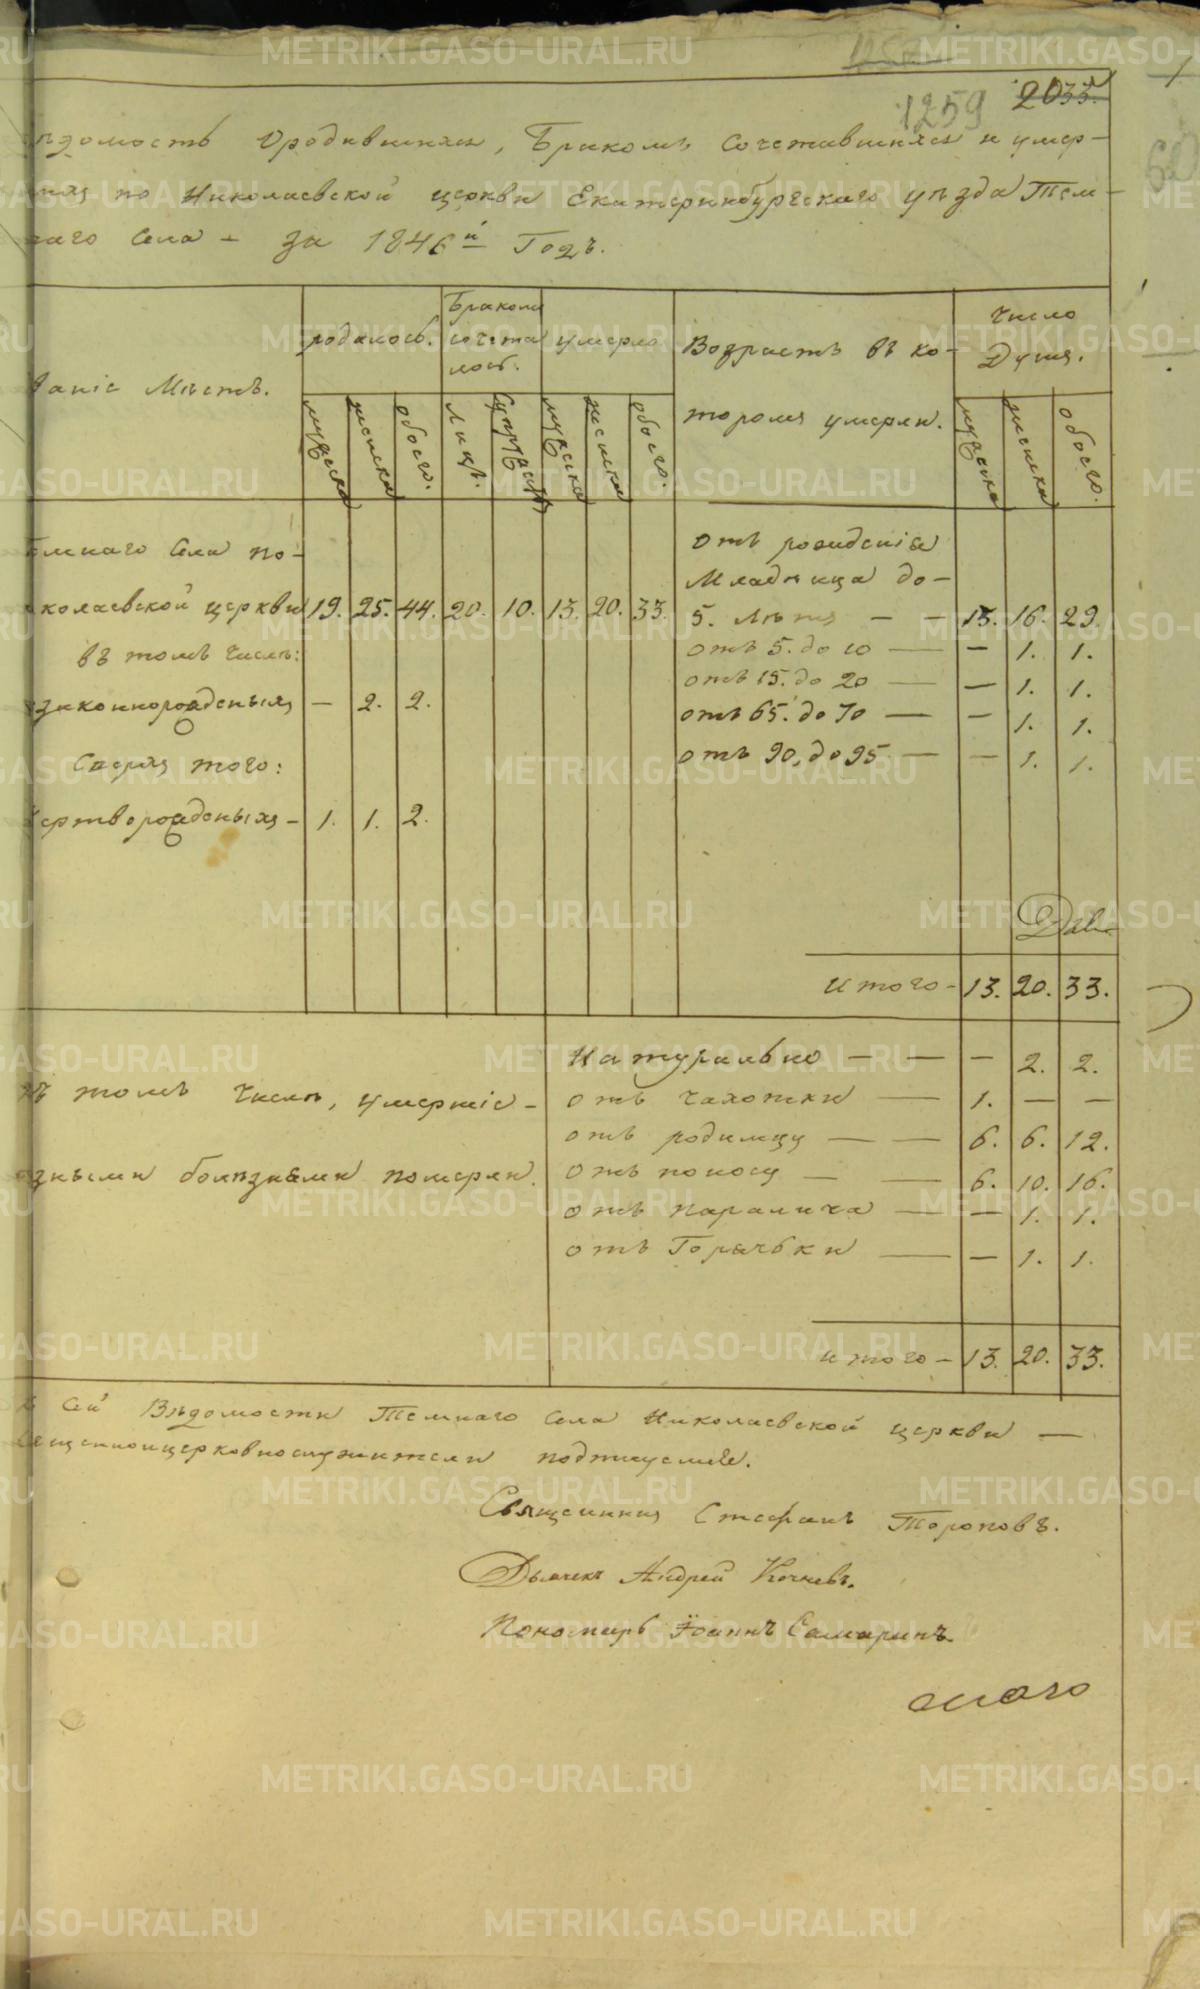 1259 2033.
ѣдомость О родившихся, Бракомъ сочетавшихся и умер-
шихъ по Николаевской церкви Екатеринбургскаго уѣзда Тем-
наго Села - за 1846й Годъ.
ваніе Мѣстъ.
родилось.
Бракомъ сочета лось.
умерло
Возрастъ въ ко-
торомъ умерли.
Число Душъ.
мужеска женска обоего. Лицъ. Супружествъ мужеска женска обоего. мужеска женска обоего.
емнаго Села но-
колаевской церкви 19. 25. 44. 20. 10. 13. 20. 33.
въ томъ числѣ:
законнорожденныхъ — 2. 2.
Сверхъ того:
ертворожденныхъ - 1. 1. 2.
отъ рожденія
Младенца до-
5. лѣтъ — — 13. 16. 29.
отъ 5. до 10 — — 1. 1.
отъ 15. до 20 — — 1. 1.
отъ 65. до 70 — — 1. 1.
отъ 90. до 95 — — 1. 1.
Итого - 13. 20. 33.
въ томъ числѣ, умершіе -
азными болѣзнями померли.
Натурально — — — 2. 2.
отъ чахотки — 1. — —
отъ родимцу — — 6. 6. 12.
отъ поносу — — 6. 10. 16.
отъ паралича — — 1. 1.
отъ Горячьки — — 1. 1.
итого - 13. 20. 33.
Къ Сей Вѣдомости Темнаго Села Николаевской церкви —
священноицерковнослужители подписуемся.
Священникъ Стефанъ Тороповъ.
Дьячекъ Андрей Кочневъ.
Пономарь Іоаннъ Самаринъ.
METRIKI.GASO-URAL.RU